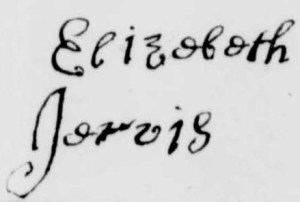 Elizabeth
Jarvis